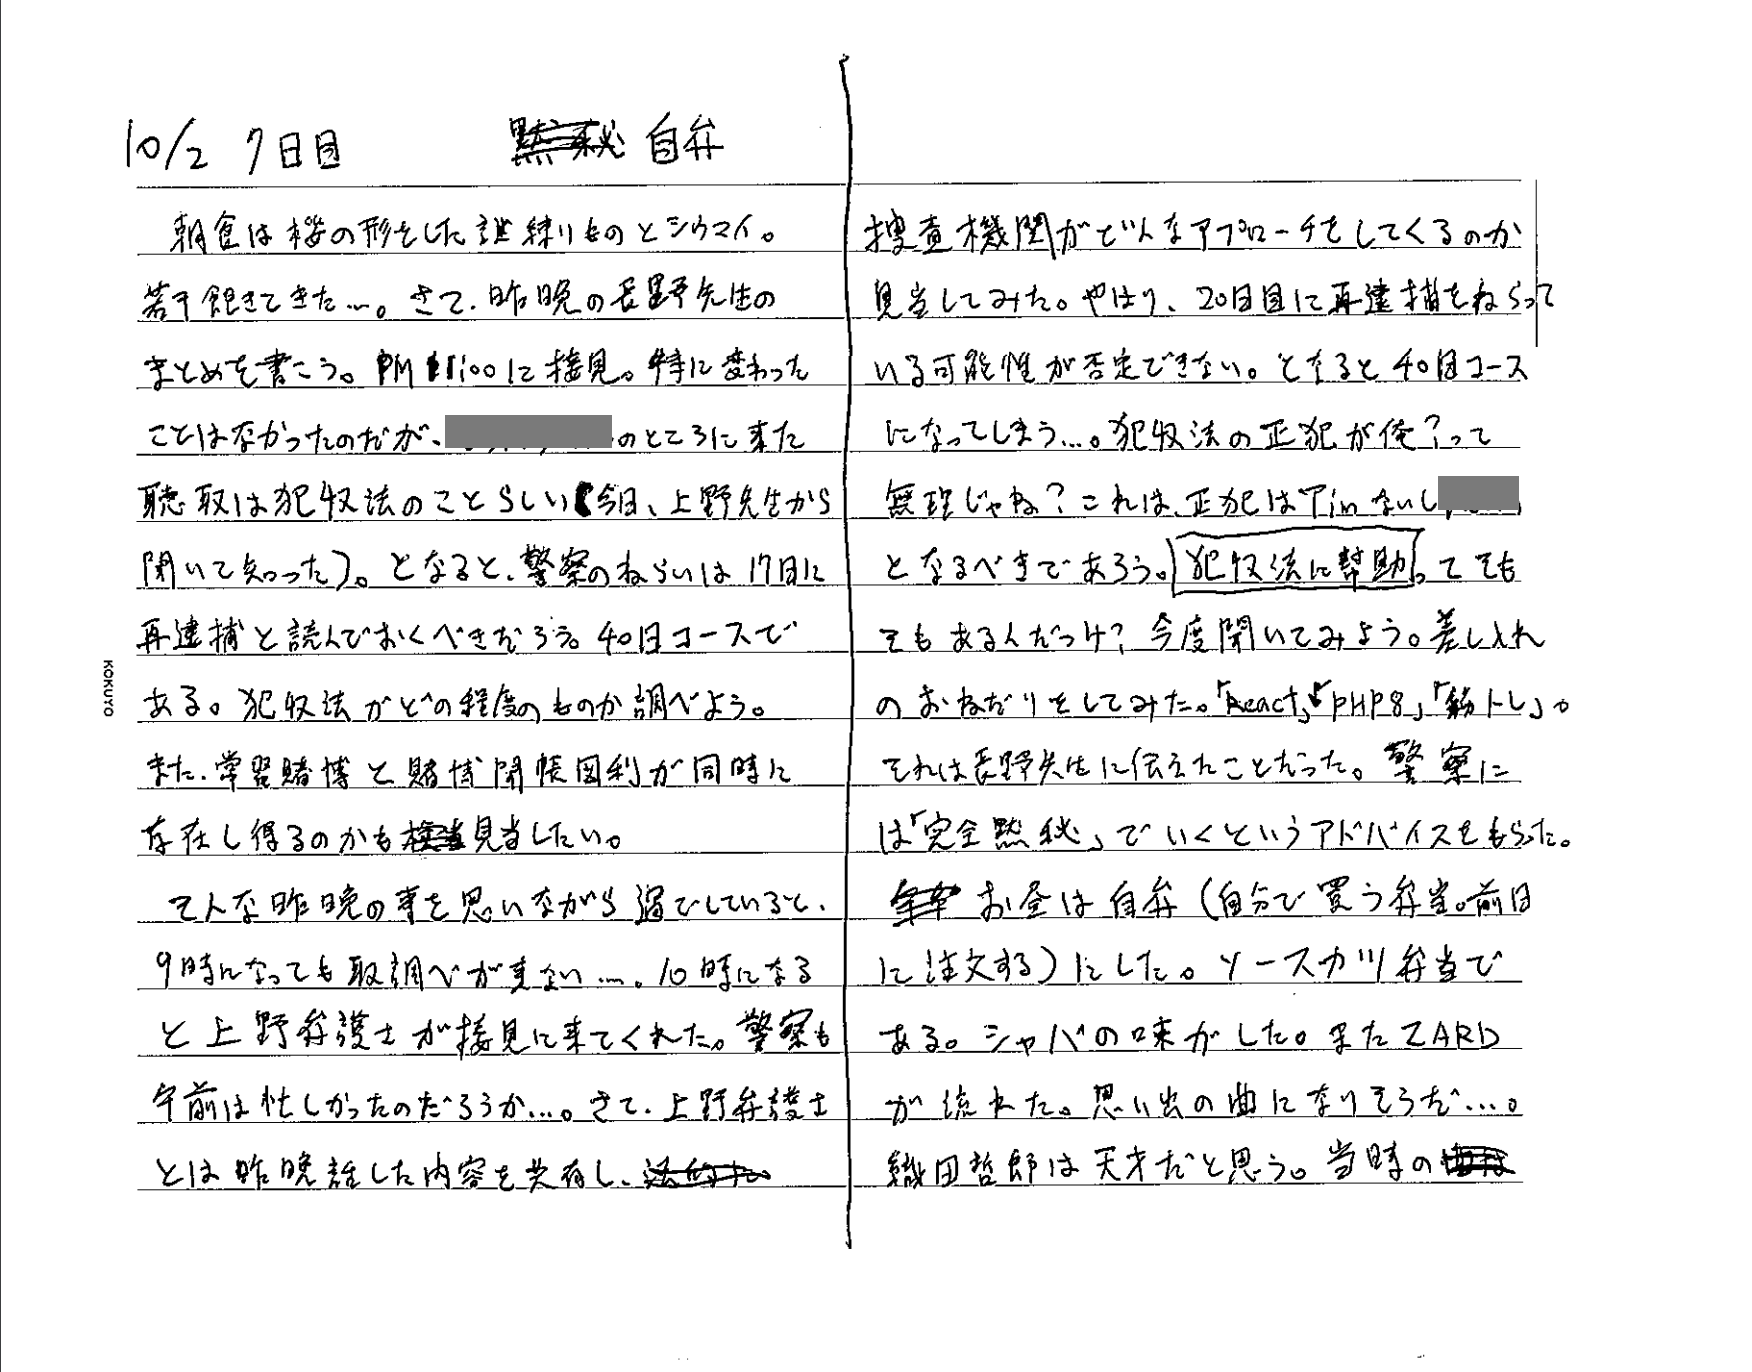 10/2 7日目 自弁
朝食は桜の形をした練りものとシウマイ。
若干飽きてきた…。さて、昨晩の長野先生の
まとめを書こう。PM 1:00に接見。特に変わった
ことはなかったのだが、のところに来た
聴取は犯収法のことらしい(今日、上野先生から
聞いて知った)。となると、警察のねらいは17日に
再逮捕と読んでおくべきだろう。40日コースで
ある。犯収法がどの程度のものか調べよう。
また、常習賭博と賭博開帳図利が同時に
存在し得るのかも見当したい。
そんな昨晩の事を思いながら過ごしていると、
9時になっても取調べが来ない…。10時になる
と上野弁護士が接見に来てくれた。警察も
午前は忙しかったのだろうか…。さて、上野弁護士
とは昨晩話した内容を共有し、
捜査機関がどんなアプローチをしてくるのか
見当してみた。やはり、20日目に再逮捕をねらって
いる可能性が否定できない。となると40日コース
になってしまう…。犯収法の正犯が俺?って
無理じゃね?これは、正犯はTinないし
となるべきであろう。犯収法に幇助ってそも
そもあるんだっけ?今度聞いてみよう。差し入れ
のおねだりをしてみた。「React」「PHP8」「筋トレ」。
それは長野先生に伝えたことだった。警察に
は「完全黙秘」でいくというアドバイスをもらった。
お昼は自弁(自分で買う弁当。前日
に注文する)にした。ソースカツ弁当で
ある。シャバの味がした。またZARD
が流れた。思い出の曲になりそうだ…。
織田哲郎は天才だと思う。当時の
KOKUYO